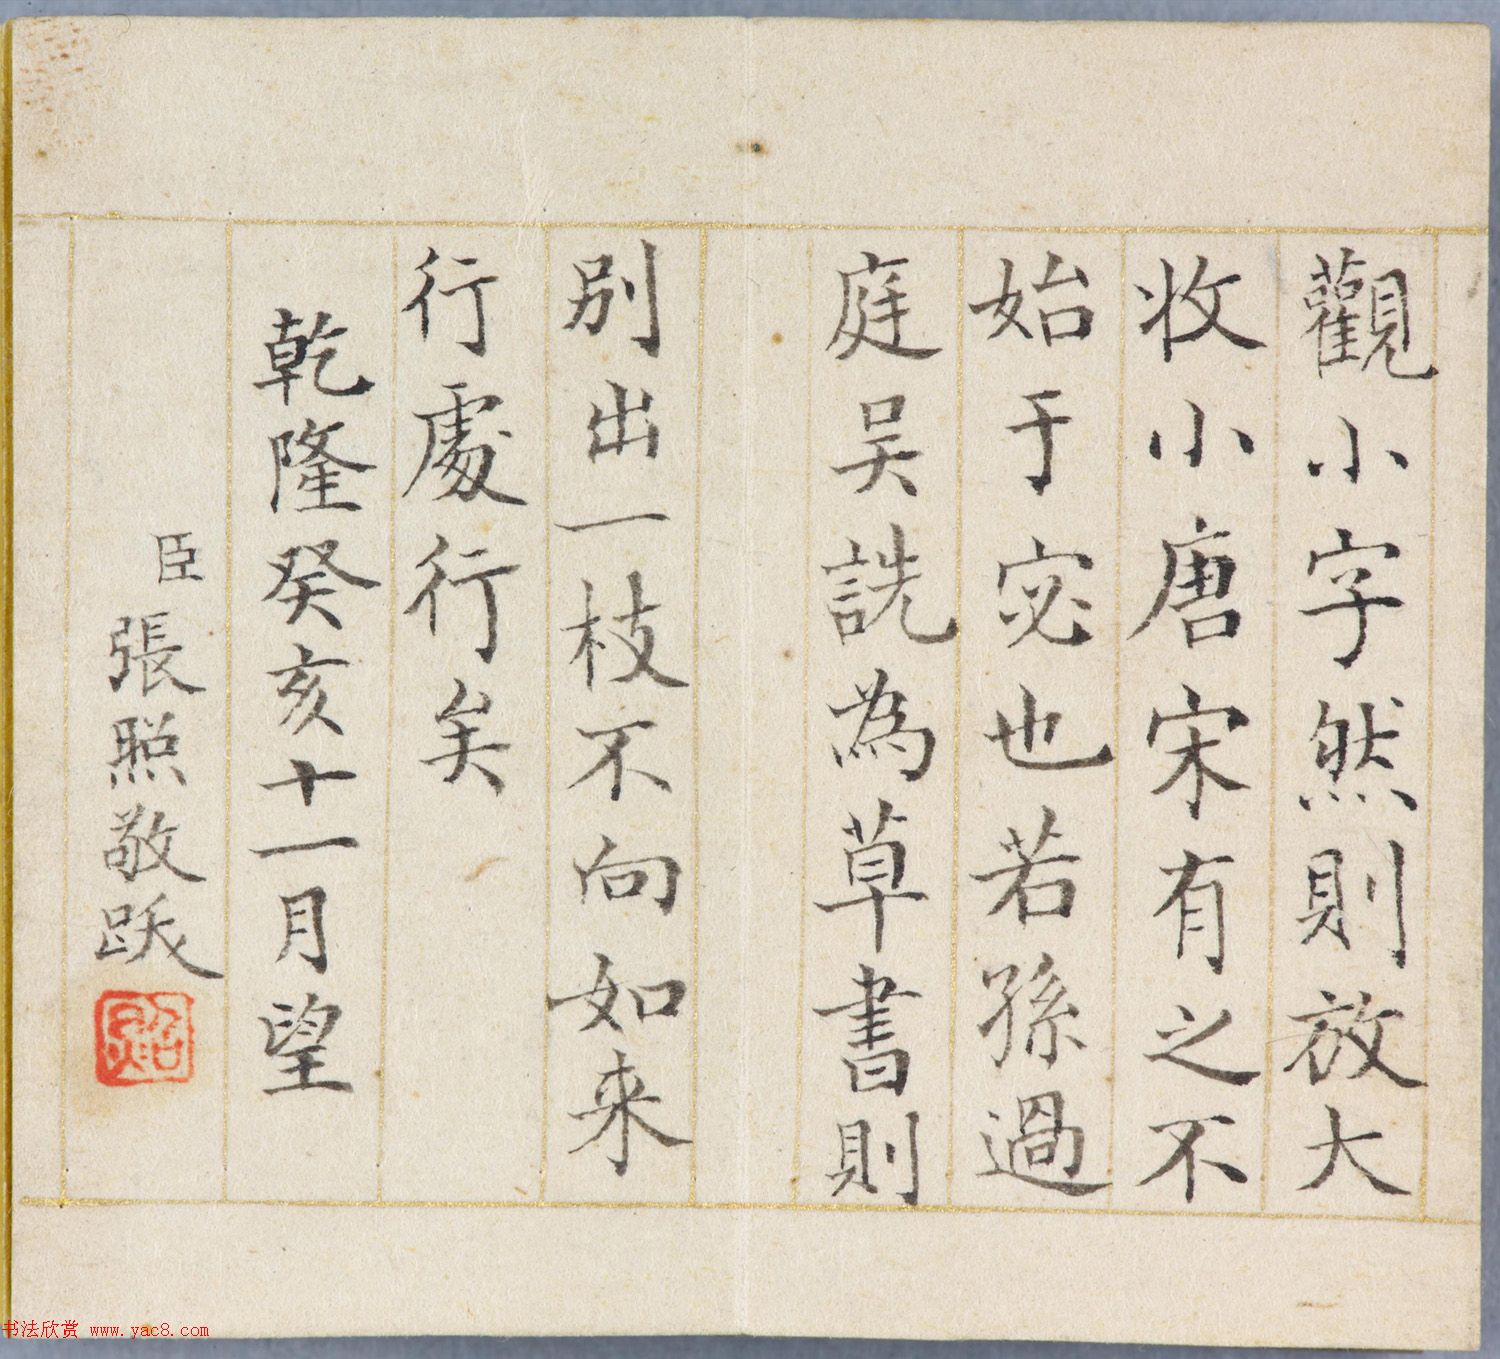 觀小字然則放大
收小唐宋有之不
始于宓也若孫過
庭吴說為草書則
别出一枝不向如来
行處行矣
乾隆癸亥十一月望
臣張照敬跋
照
书法欣赏 www.yac8.com